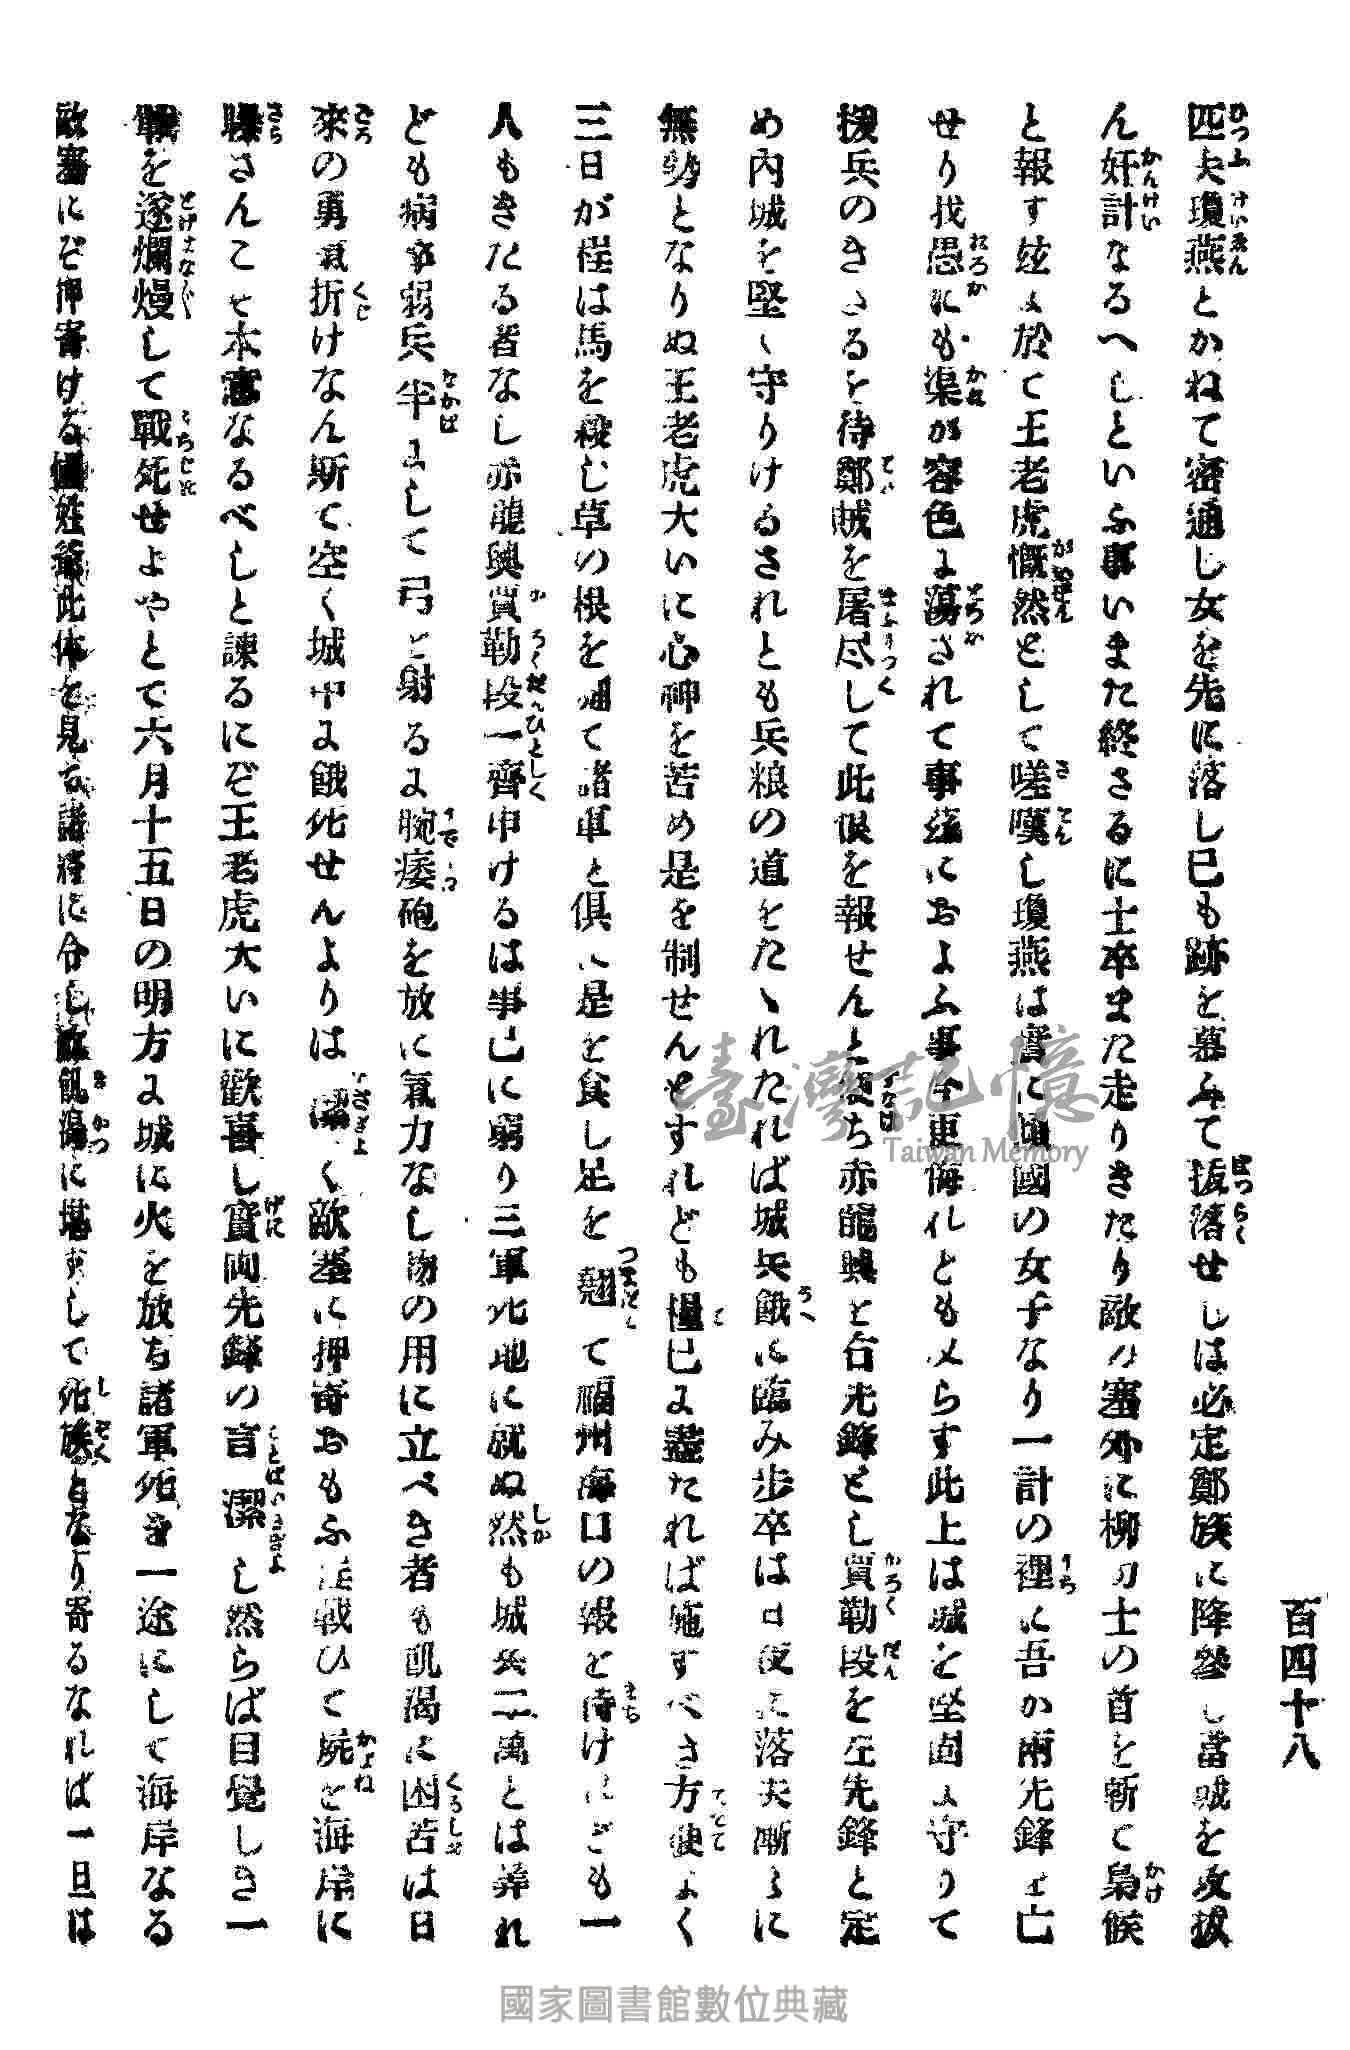 百四十八
匹夫瓊燕とかねて密通し女を先に落し已も跡を慕ふて拔落せしは必定鄭族に降參し當城を攻拔
ん奸計なるへしといふ事いまた終さるに士卒また走りきたり敵の塞外に柳の士の首を斬て梟候
と報す玆に於て王老虎慨然として嗟嘆し瓊燕は實に傾國の女子なり一計の裡に吾か兩先鋒を亡
せり我愚にも渠が容色に蕩されて事玆におよふ事今更悔れとも及らす此上は城を堅固に守りて
援兵のきたるを待鄭賊を屠尽して此恨を報せんと便ち赤龍興を右先鋒とし賀勒段を左先鋒と定
め内城を堅く守りけるされとも兵粮の道をたゝれたれば城兵餓に臨み歩卒は日夜に落失漸々に
無勢となりぬ王老虎大いに心神を苦め是を制せんとすれども糧已に盡たれば施すべき方便なく
三日が程は馬を殺し草の根を掘て諸軍と倶に是を食し足を翹て福州海口の報を待けれども一
人もきたる者なし赤龍興賀勒段一齊申けるは事已に窮り三軍死地に就ぬ然も城兵二萬とは雖れ
ども病卒弱兵半にして弓を射るに腕痿砲を放に氣力なし物の用に立べき者も飢渴に困苦は日
來の勇氣折けなん斯て空く城中に餓死せんよりは潔く敵塞に押寄おもふ儘戰ひて屍を海岸に
曝さんこそ本意なるべしと諫るにぞ王老虎大いに歡喜し實両先鋒の言潔し然らば目覺しき一
戰を遂爛熳して戰死せよやとて六月十五日の明方に城に火を放ち諸軍死を一途にして海岸なる
敵塞にぞ押寄ける國姓爺此体を見て諸將に令し敵飢渴に堪ずして死族となり寄るなれば一旦は
臺灣記憶
Taiwan Memory
國家圖書館數位典藏